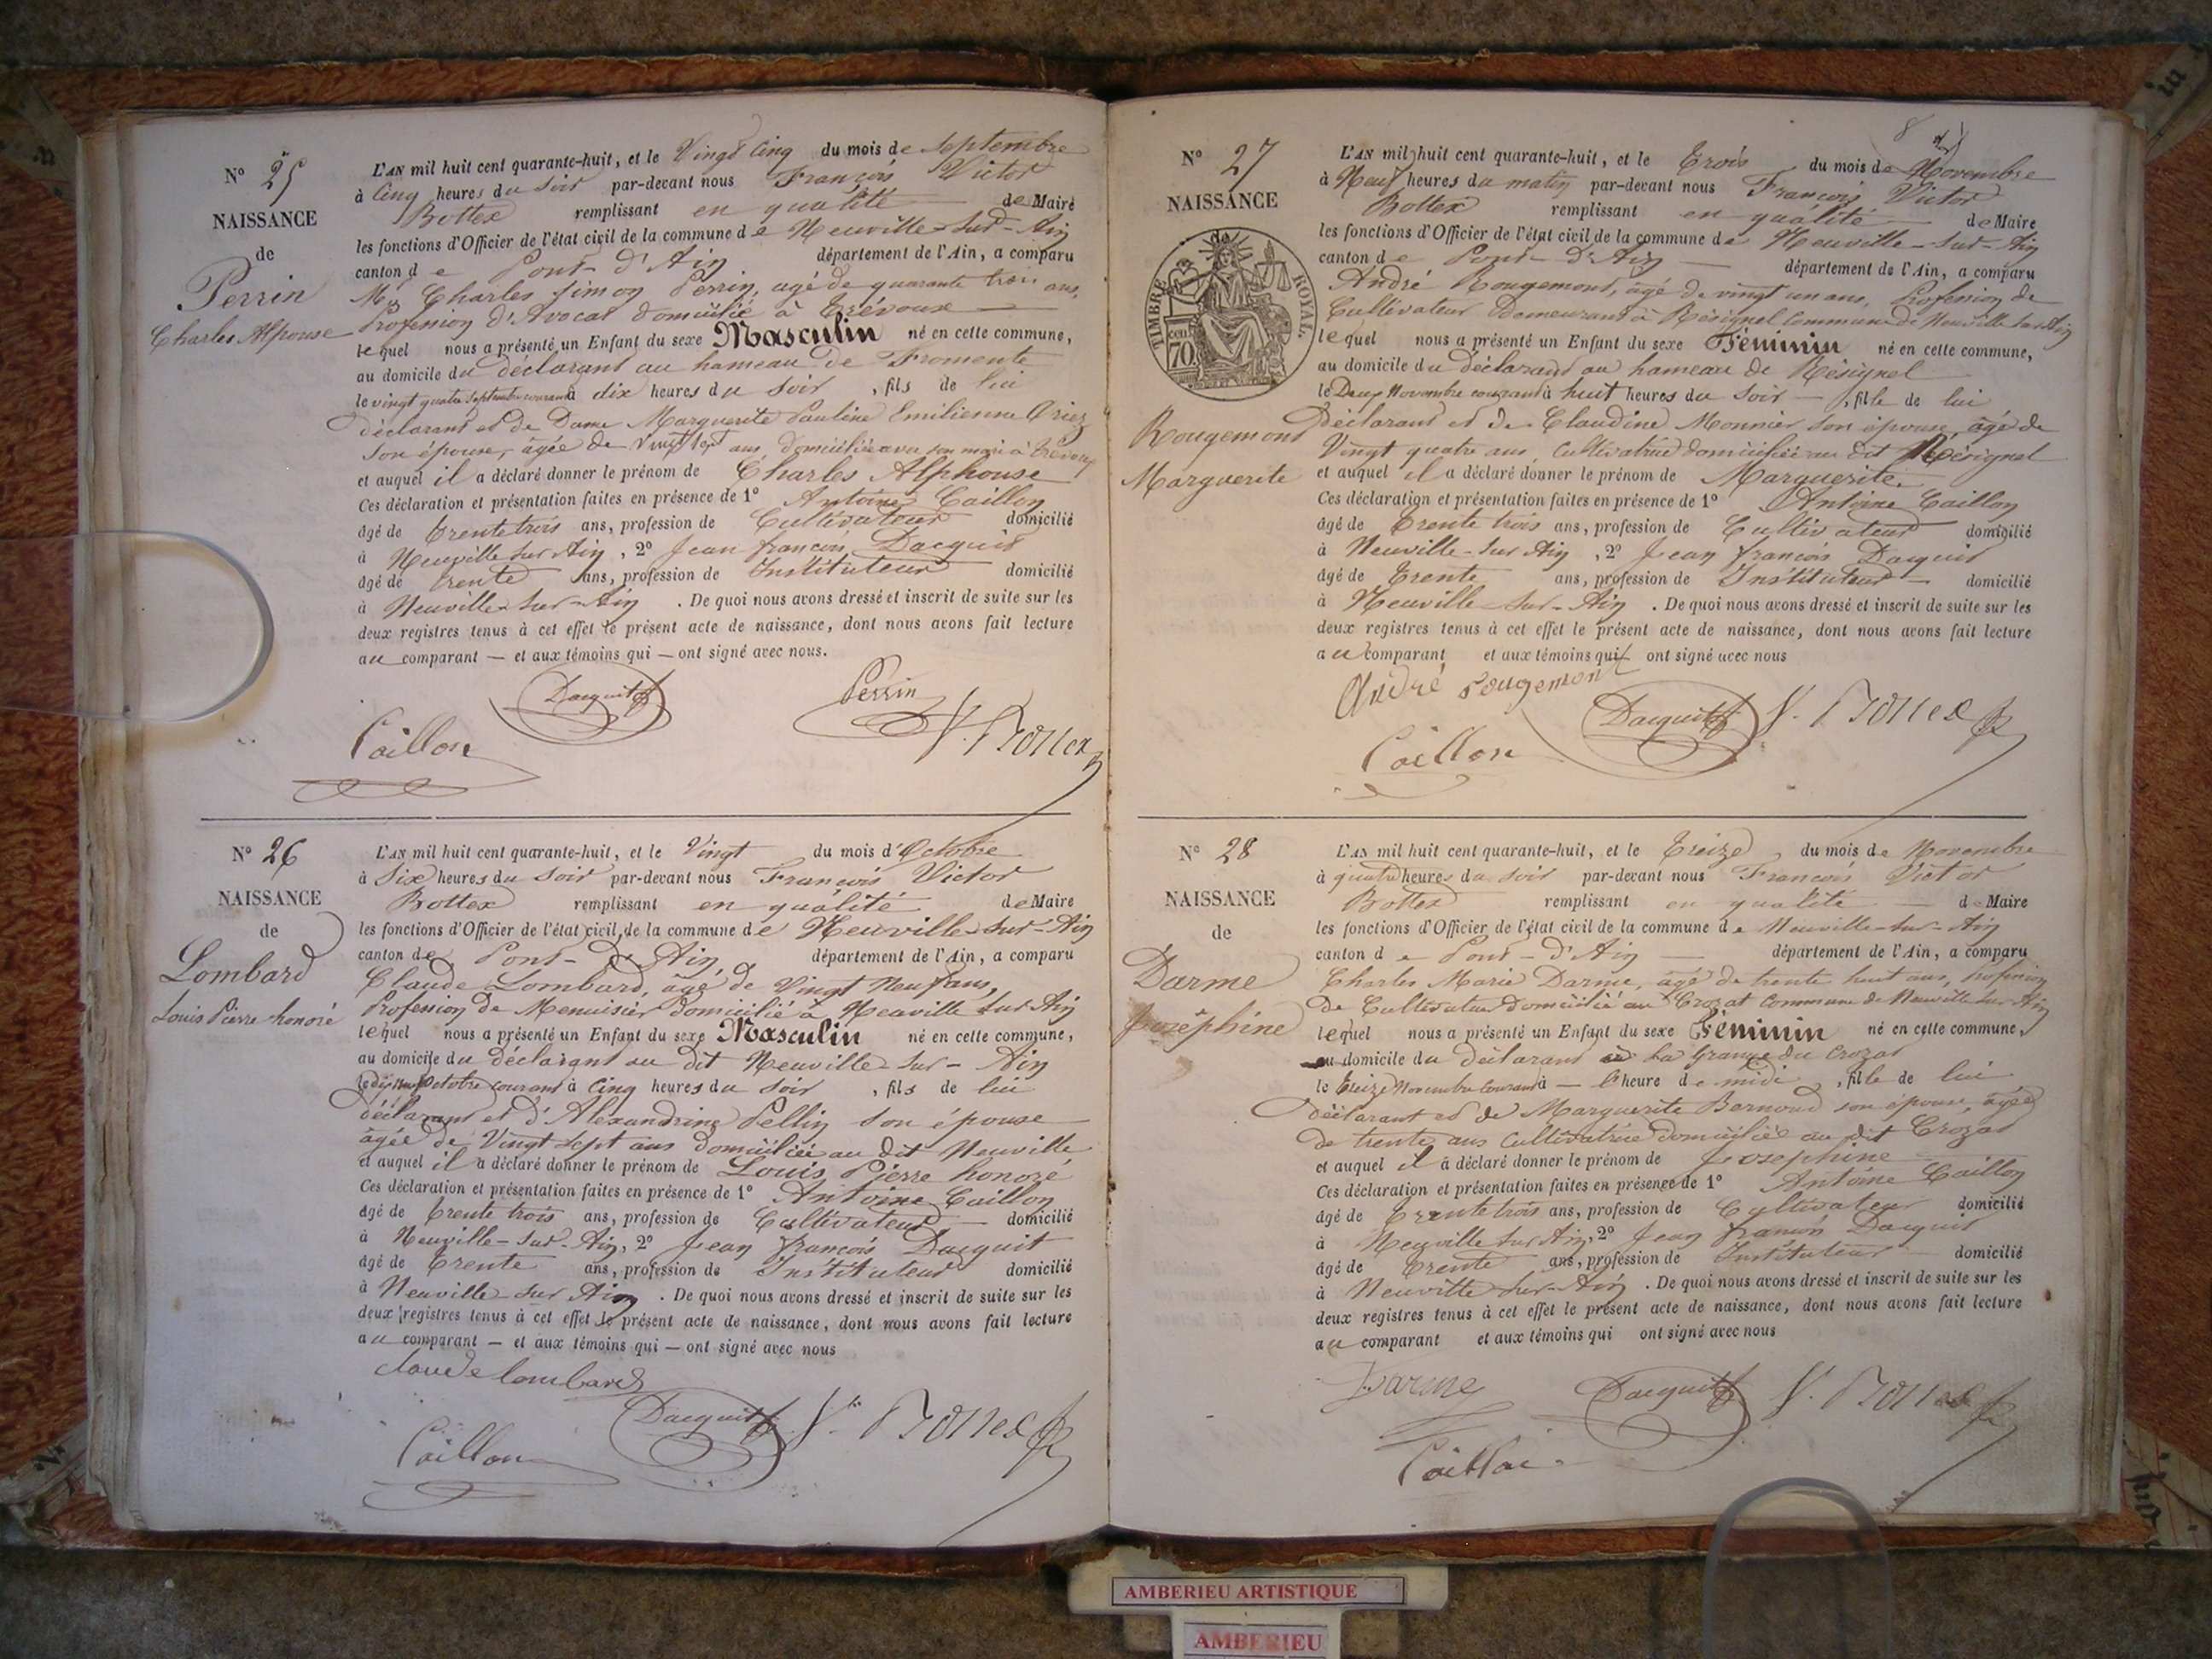 N° 25
NAISSANCE
de
Perrin
Charles Alphonse
L'AN mil huit cent quarante-huit, et le Vingt Cinq du mois de Septembre
à Cinq heures du Soir par-devant nous François Victor
Bottex remplissant en qualité de Maire
les fonctions d'Officier de l'état civil de la commune de Neuville-sur-Ain
canton de Pont-d'Ain département de l'Ain, a comparu
Mr Charles Simon Perrin, agé de quarante trois ans,
Profession d'Avocat domicilié à Trévoux
lequel nous a présenté un Enfant du sexe Masculin né en cette commune,
au domicile du déclarant au hameau de Fromente
le vingt quatre septembre courant à dix heures du Soir, fils de lui
déclarant et de Dame Marguerite Pauline Emilienne
son épouse, âgée de vingt sept ans, domiciliée avec son mari à Trévoux
et auquel il a déclaré donner le prénom de Charles Alphonse
Ces déclaration et présentation faites en présence de 1° Antoine Caillon
âgé de trente trois ans, profession de Cultivateur domicilié
à Neuville sur Ain, 2° Jean françois Dacquit
âgé de trente ans, profession de Instituteur domicilié
à Neuville-sur-Ain. De quoi nous avons dressé et inscrit de suite sur les
deux registres tenus à cet effet le présent acte de naissance, dont nous avons fait lecture
au comparant — et aux témoins qui — ont signé avec nous.
Dacquit Perrin
Caillon V. Bottex
N° 26
NAISSANCE
de
Lombard
Louis Pierre honoré
L'AN mil huit cent quarante-huit, et le Vingt du mois d'Octobre
à Six heures du Soir par-devant nous François Victor
Bottex remplissant en qualité de Maire
les fonctions d'Officier de l'état civil de la commune de Neuville-sur-Ain
canton de Pont-d'Ain, département de l'Ain, a comparu
Claude Lombard, âgé de Vingt Neuf ans,
Profession de Menuisier domicilié à Neuville sur Ain
lequel nous a présenté un Enfant du sexe Masculin né en cette commune,
au domicile du déclarant au dit Neuville-sur-Ain
le dix neuf Octobre courant à Cinq heures du Soir, fils de lui
déclarant et d'Alexandrine Pellin son épouse
âgée de Vingt sept ans domiciliée au dit Neuville
et auquel il a déclaré donner le prénom de Louis Pierre honoré
Ces déclaration et présentation faites en présence de 1° Antoine Caillon
âgé de trente trois ans, profession de Cultivateur domicilié
à Neuville-sur-Ain, 2° Jean françois Dacquit
âgé de trente ans, profession de Instituteur domicilié
à Neuville-sur Ain. De quoi nous avons dressé et inscrit de suite sur les
deux registres tenus à cet effet le présent acte de naissance, dont nous avons fait lecture
au comparant — et aux témoins qui — ont signé avec nous
claude lombard
Caillon Dacquit V. Bottex
8
N° 27
NAISSANCE
de
TIMBRE ROYAL
70
Rougemont
Marguerite
L'AN mil huit cent quarante-huit, et le Trois du mois de Novembre
à Neuf heures du matin par-devant nous François Victor
Bottex remplissant en qualité de Maire
les fonctions d'Officier de l'état civil de la commune de Neuville-sur-Ain
canton de Pont-d'Ain département de l'Ain, a comparu
André Rougemont, âgé de vingt un ans, Profession de
Cultivateur demeurant à Résignel Commune de Neuville sur Ain
lequel nous a présenté un Enfant du sexe Féminin né en cette commune,
au domicile du déclarant au hameau de Résignel
le Deux Novembre courant à huit heures du Soir —, fille de lui
déclarant et de Claudine Monnier son épouse, âgé de
Vingt quatre ans, Cultivatrice domiciliée au dit Résignel
et auquel il a déclaré donner le prénom de Marguerite.
Ces déclaration et présentation faites en présence de 1° Antoine Caillon
âgé de trente trois ans, profession de Cultivateur domicilié
à Neuville-sur Ain, 2° Jean françois Dacquit
âgé de trente ans, profession de Instituteur — domicilié
à Neuville-sur-Ain. De quoi nous avons dressé et inscrit de suite sur les
deux registres tenus à cet effet le présent acte de naissance, dont nous avons fait lecture
au comparant et aux témoins qui ont signé avec nous
André rougemont
Caillon Dacquit V. Bottex
N° 28
NAISSANCE
de
Darme
Joséphine
L'AN mil huit cent quarante-huit, et le Treize du mois de Novembre
à quatre heures du soir par-devant nous François Victor
Bottex remplissant en qualité — de Maire
les fonctions d'Officier de l'état civil de la commune de Neuville-sur-Ain
canton de Pont-d'Ain — département de l'Ain, a comparu
Charles Marie Darme, âgé de trente huit ans, profession
de Cultivateur Domicilié au Crozat Commune de Neuville sur Ain
lequel nous a présenté un Enfant du sexe Féminin né en cette commune,
au domicile du déclarant à La Grange du Crozat
le Treize Novembre Courant à — l'heure de midi, fille de lui
déclarant et de Marguerite Bernoud son épouse, âgée
de trente ans Cultivatrice domiciliée au dit Crozat
et auquel il a déclaré donner le prénom de Josephine
Ces déclaration et présentation faites en présence de 1° Antoine Caillon
âgé de trente trois ans, profession de Cultivateur domicilié
à Neuville sur Ain, 2° Jean françois Dacquit
âgé de trente ans, profession de Instituteur domicilié
à Neuville-sur-Ain. De quoi nous avons dressé et inscrit de suite sur les
deux registres tenus à cet effet le présent acte de naissance, dont nous avons fait lecture
au comparant et aux témoins qui ont signé avec nous
Darme Dacquit V. Bottex
Caillon
AMBERIEU ARTISTIQUE
AMBERIEU